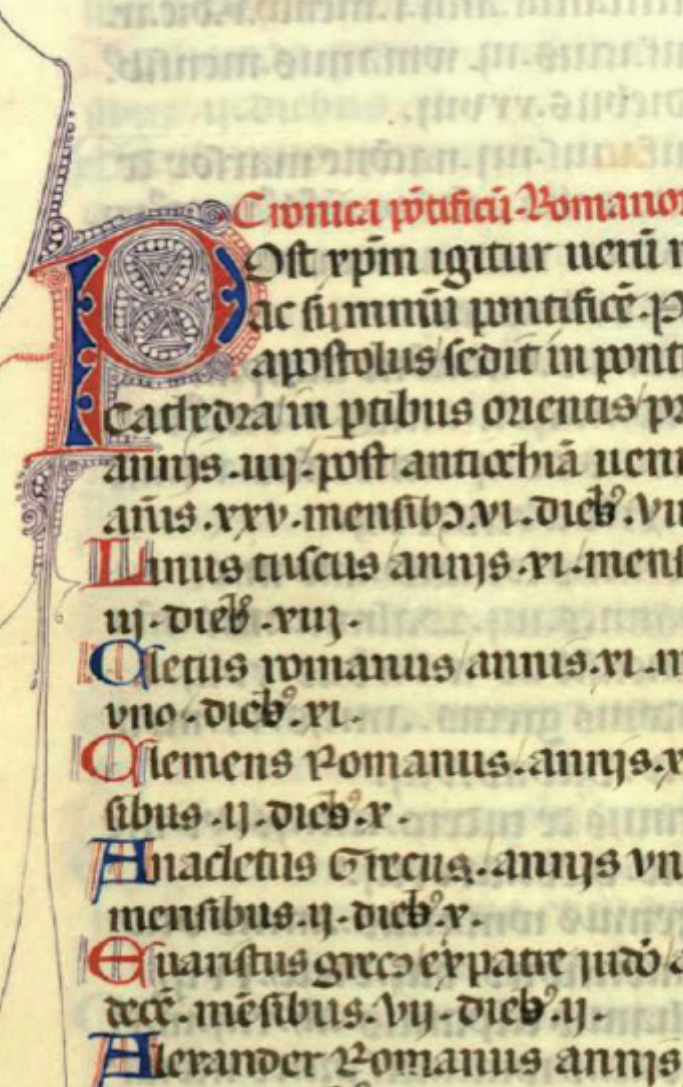 Cronica põtificũ. Romano
Post xp̃m igitur uerũ
ac summũ pontificẽ. P
apostolus sedit in pont
Cathedra in ꝑtibus orientis
annis .iiij. post antiochiã ueni
añis .xxv. mensibꝫ .vi. dieb⁹ .vii
Linus tuscus annis .xi. mens
iij. dieb⁹ .xiij.
Cletus romanus annis .xi. m
vno. dieb⁹ .xi.
Clemens Romanus. annis. x
sibus .ij. dieb⁹ .x.
Anacletus Grecus. annis vn
mensibus .ij. dieb⁹ .x.
Euaristus grecꝰ ex patre iudõ a
decẽ. mẽsibus. vij. dieb⁹ .ij.
Alexander Romanus annis